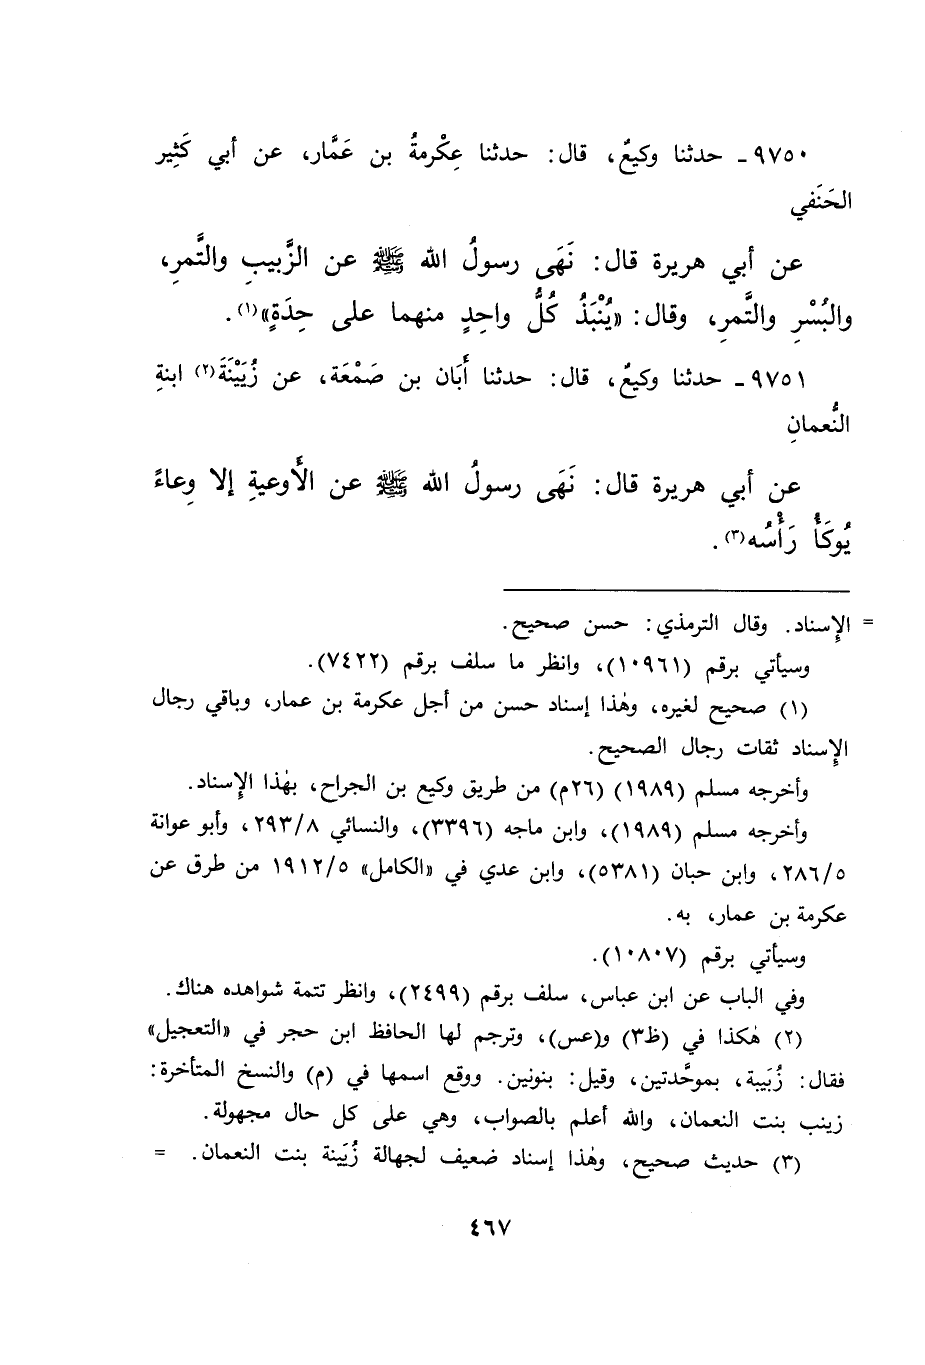 ٩٧٥٠ـ حدثنا وكيعٌ، قال: حدثنا عِكْرمةُ بن عَمَّار، عن أبي كَثِير
الحَنَفي
عن أبي هريرة قال: نَهَى رسولُ الله ﷺ عن الزَّبيبِ والتَّمرِ،
والبُسْرِ والتَّمرِ، وقال: «يُنْبَذُ كُلُّ واحِدٍ منهما على حِدَةٍ»(١).
٩٧٥١ـ حدثنا وكيعٌ، قال: حدثنا أَبَان بن صَمْعَة، عن زُبَيْنَةَ(٢) ابنةِ
النُّعمانِ
عن أبي هريرة قال: نَهَى رسولُ الله ﷺ عن الأَوعيةِ إلا وِعاءً
يُوكَأُ رَأْسُه(٣).
= الإِسناد. وقال الترمذي: حسن صحيح.
وسيأتي برقم (١٠٩٦١)، وانظر ما سلف برقم (٧٤٢٢).
(١) صحيح لغيره، وهٰذا إسناد حسن من أجل عكرمة بن عمار، وباقي رجال
الإِسناد ثقات رجال الصحيح.
وأخرجه مسلم (١٩٨٩) (٢٦م) من طريق وكيع بن الجراح، بهٰذا الإِسناد.
وأخرجه مسلم (١٩٨٩)، وابن ماجه (٣٣٩٦)، والنسائي ٢٩٣/٨، وأبو عوانة
٢٨٦/٥، وابن حبان (٥٣٨١)، وابن عدي في «الكامل» ١٩١٢/٥ من طرق عن
عكرمة بن عمار، به.
وسيأتي برقم (١٠٨٠٧).
وفي الباب عن ابن عباس، سلف برقم (٢٤٩٩)، وانظر تتمة شواهده هناك.
(٢) هٰكذا في (ظ٣) و(عس)، وترجم لها الحافظ ابن حجر في «التعجيل»
فقال: زُبَيبة، بموحَّدتين، وقيل: بنونين. ووقع اسمها في (م) والنسخ المتأخرة:
زينب بنت النعمان، والله أعلم بالصواب، وهي على كل حال مجهولة.
(٣) حديث صحيح، وهٰذا إسناد ضعيف لجهالة زُبَينة بنت النعمان. =
٤٦٧